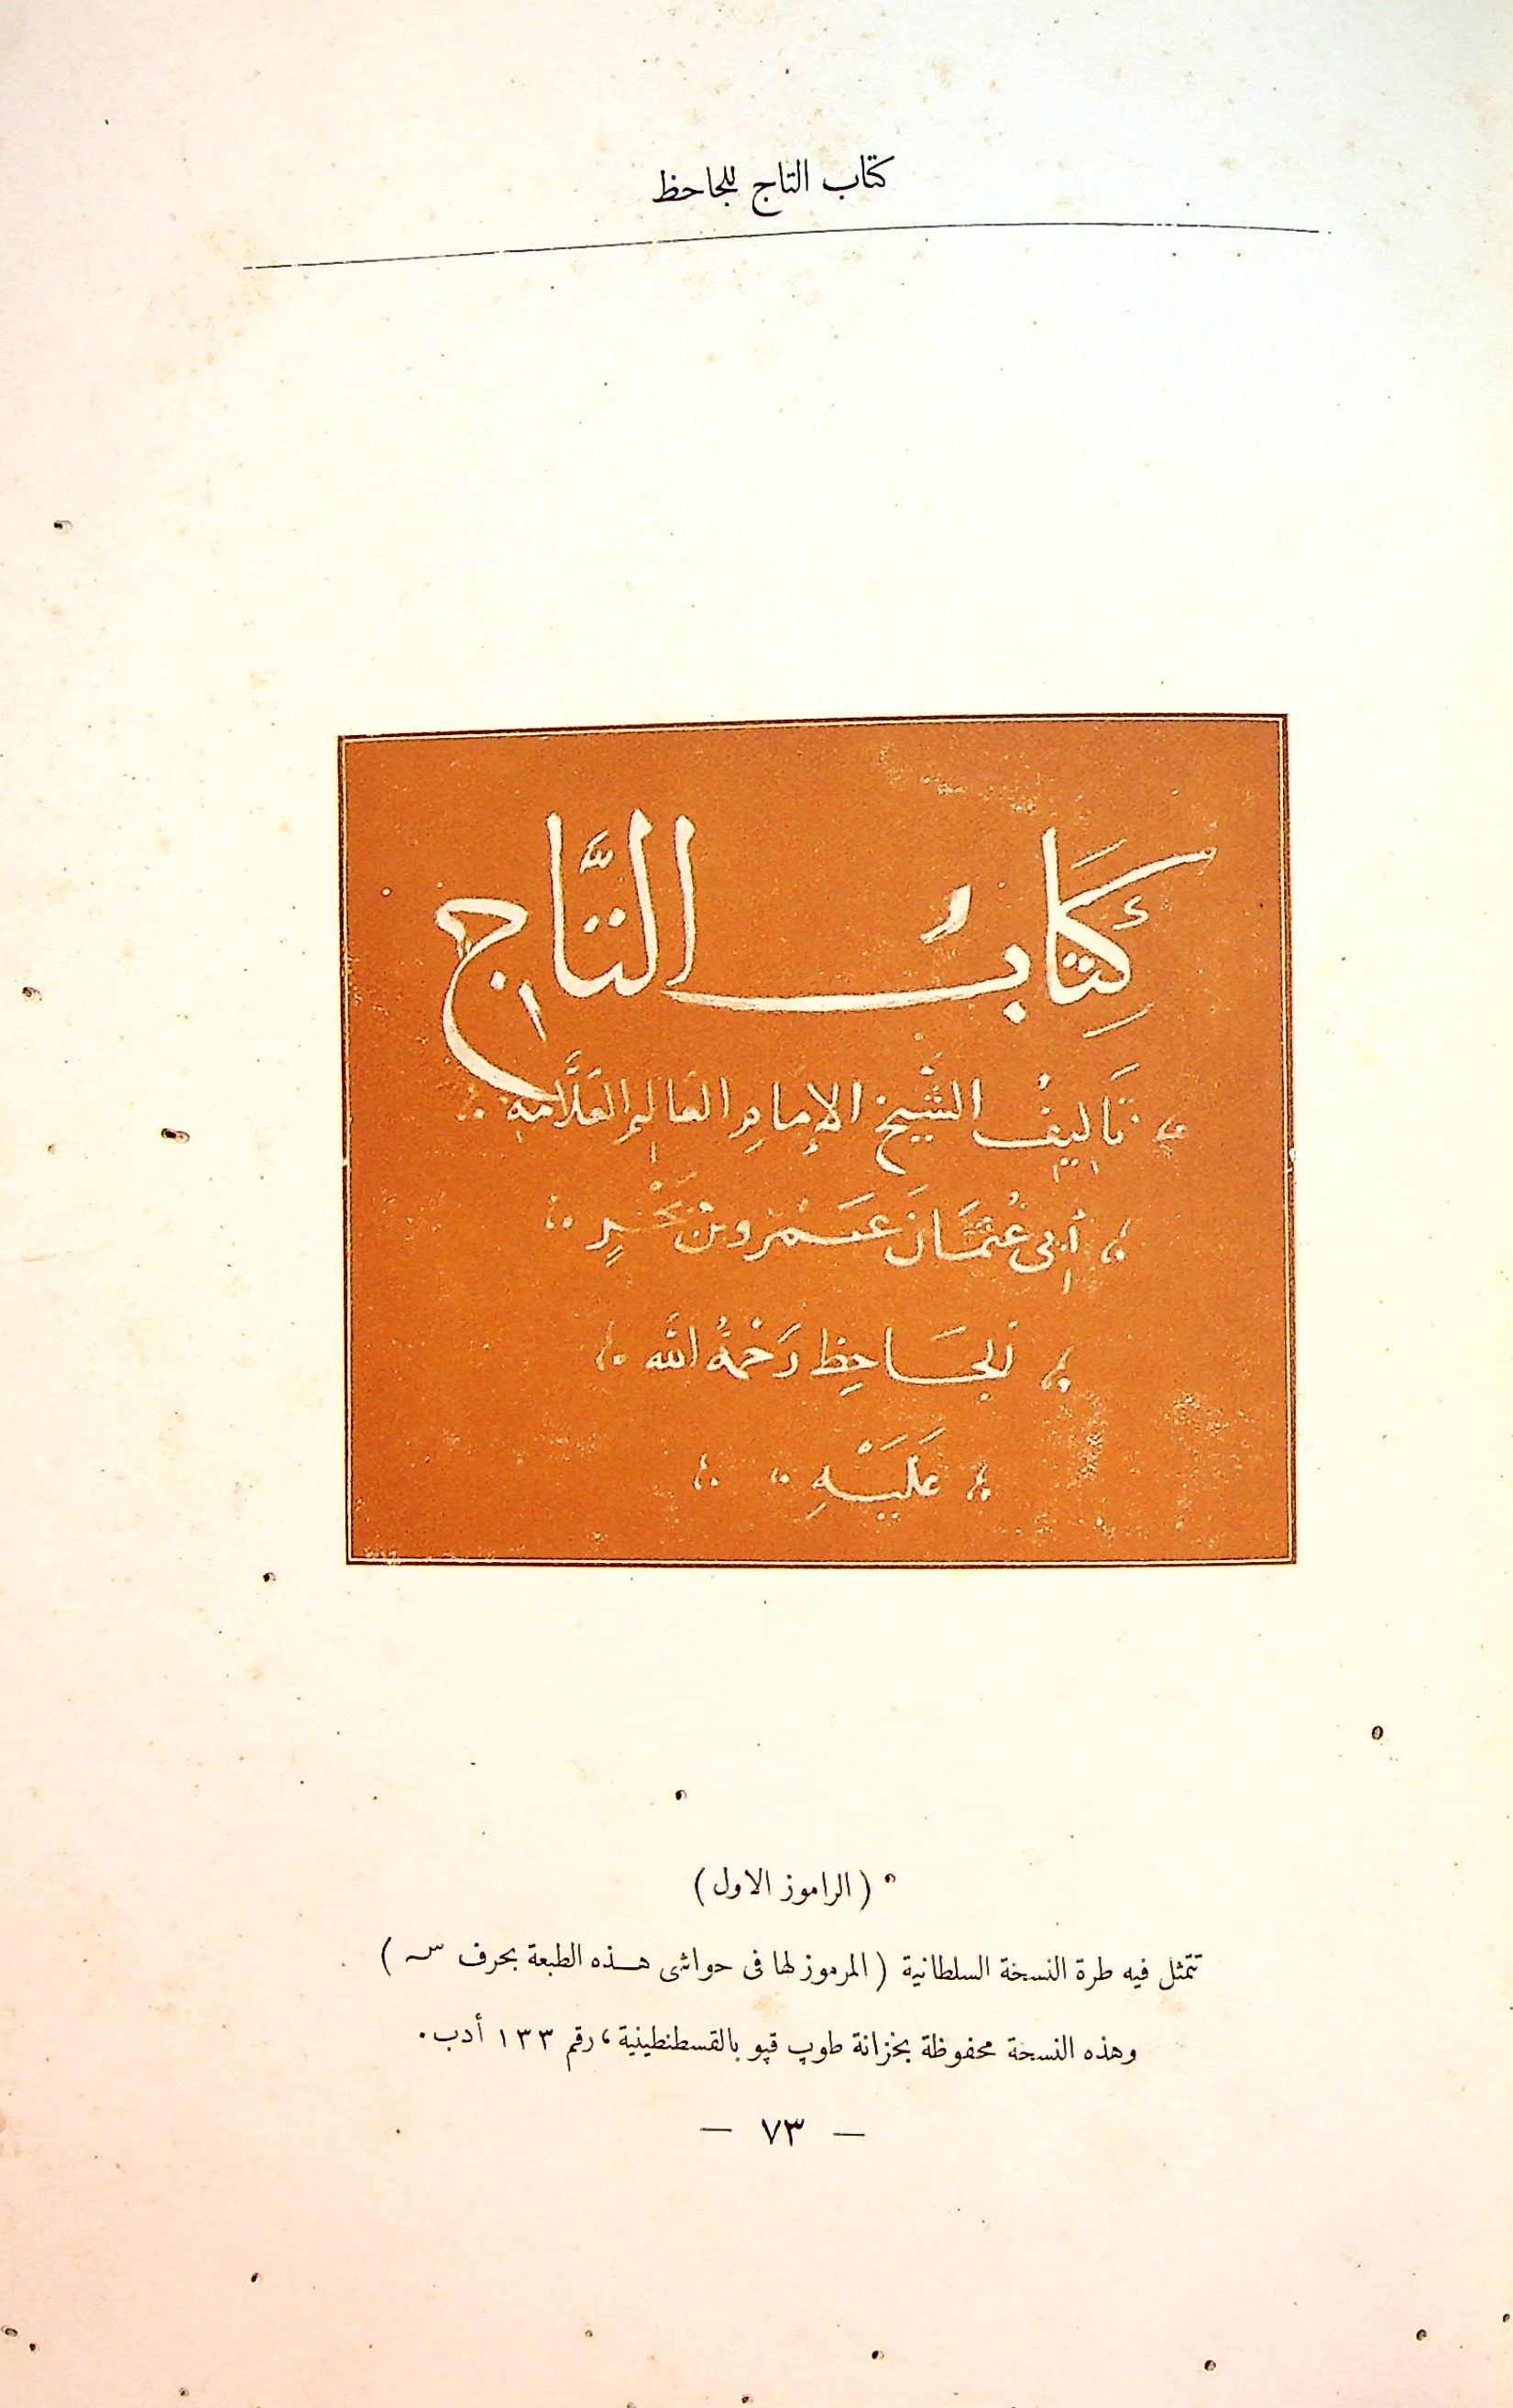 كتاب التاج للجاحظ
كِتَابُ التَّاجِ
تَأليفُ الشَّيخِ الإمَامِ العَالِمِ العَلَّامَهِ
أبِى عُثمَانَ عَمْرو بن بَحْرٍ
الجَاحِظِ رَحْمَةُ الله
عَلَيْهِ
(الراموز الاول)
تتمثل فيه طرة النسخة السلطانية (المرموز لها فى حواشى هذه الطبعة بحرف سـ)
وهذه النسخة محفوظة بخزانة طوپ قپو بالقسطنطينية، رقم ١٣٣ أدب.
— ٧٣ —